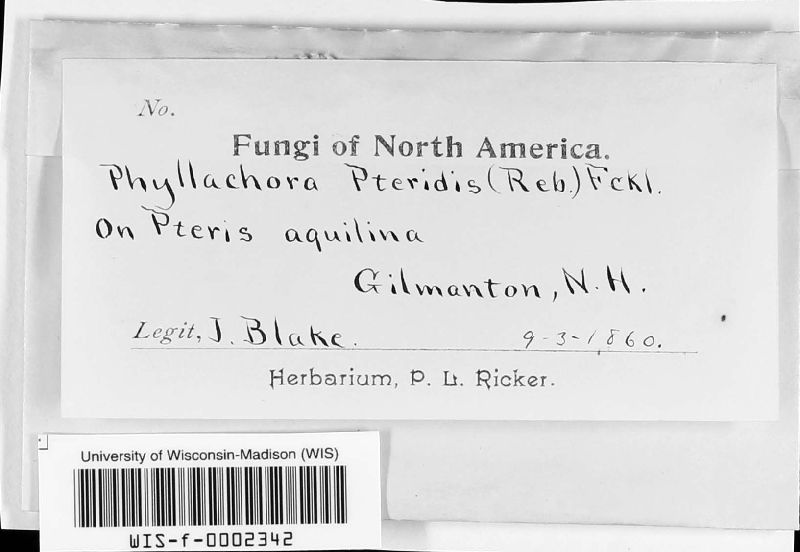 No.
Fungi of North America.
Phyllachora Pteridis (Reb.) Fckl.
On Pteris aquilina
Gilmanton, N.H.
Legit, J. Blake. 9-3-1860.
Herbarium, P. L. Ricker.
University of Wisconsin-Madison (WIS)
WIS-f-0002342